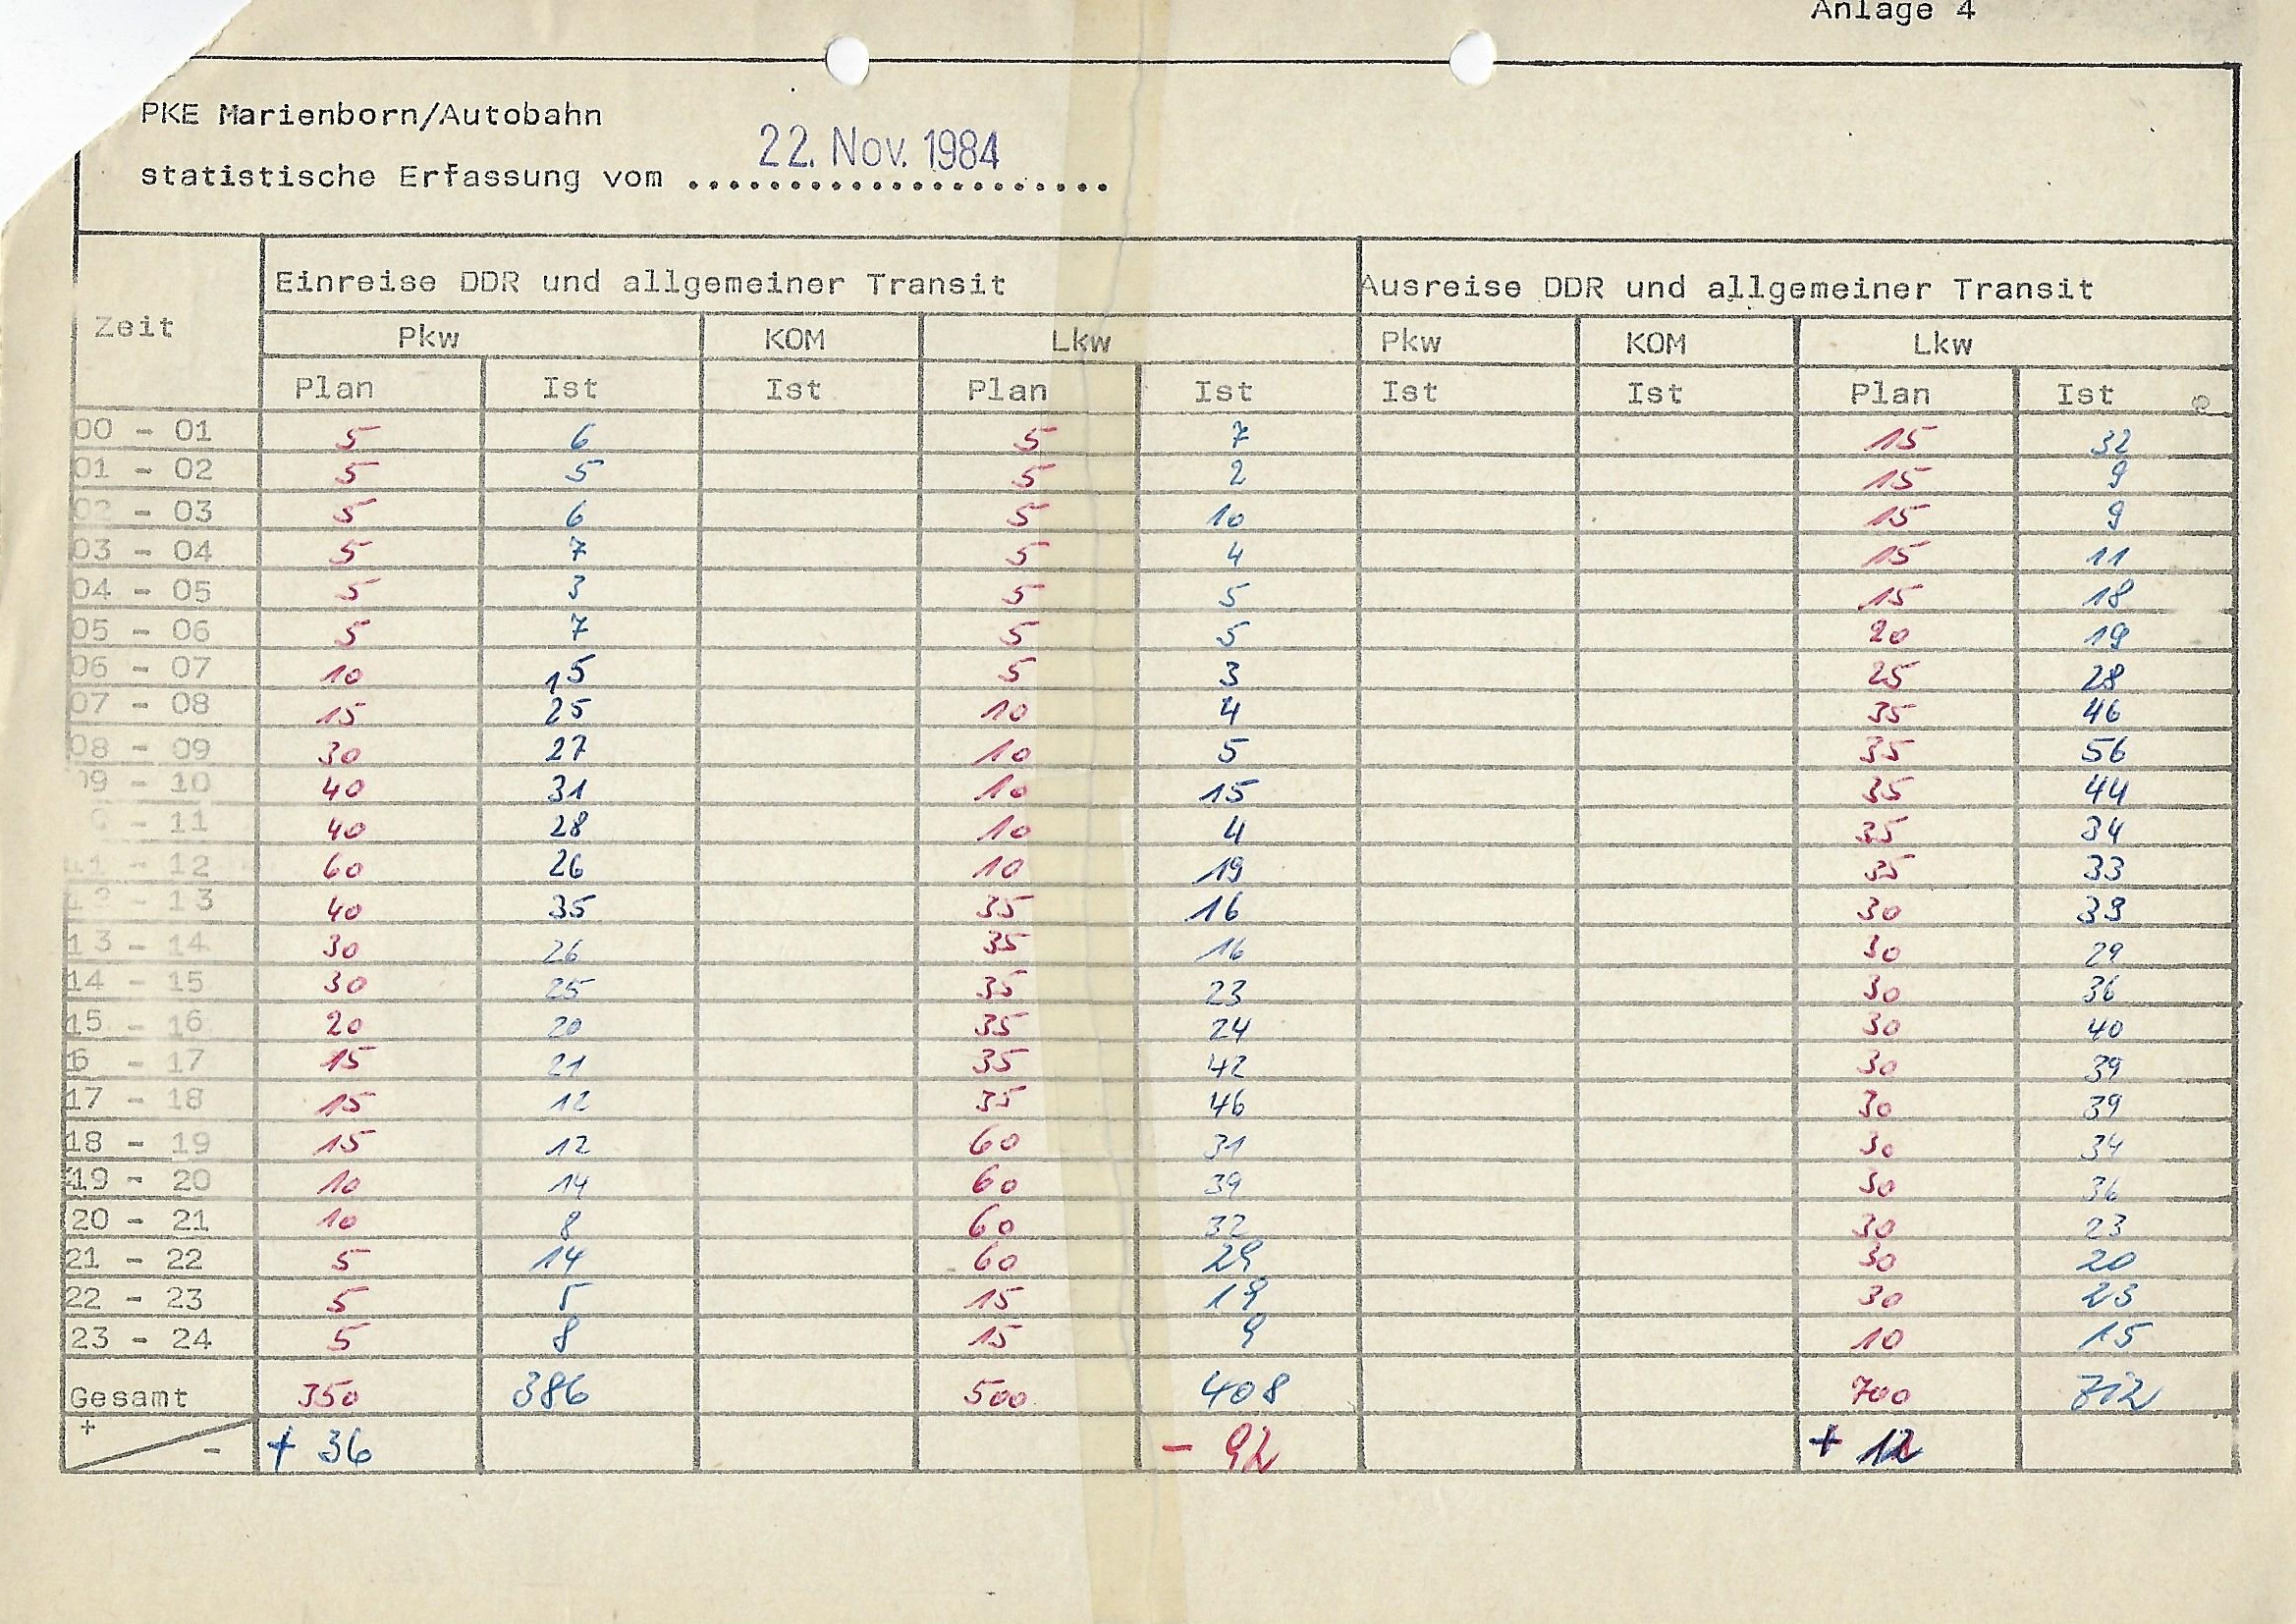 Anlage 4
PKE Marienborn/Autobahn
22. Nov. 1984
statistische Erfassung vom .....................
Einreise DDR und allgemeiner Transit Ausreise DDR und allgemeiner Transit
Zeit
Pkw KOM Lkw Pkw KOM Lkw
Plan Ist Ist Plan Ist Ist Ist Plan Ist
00 - 01 5 6 5 7 15 32
01 - 02 5 5 5 2 15 9
02 - 03 5 6 5 10 15 9
03 - 04 5 7 5 4 15 11
04 - 05 5 3 5 5 15 18
05 - 06 5 7 5 5 20 19
06 - 07 10 15 5 3 25 28
07 - 08 15 25 10 4 35 46
08 - 09 30 27 10 5 35 56
09 - 10 40 31 10 15 35 44
- 11 40 28 10 4 35 34
11 - 12 60 26 10 19 35 33
12 - 13 40 35 35 16 30 39
13 - 14 30 26 35 16 30 29
14 - 15 30 25 35 23 30 36
15 - 16 20 20 35 24 30 40
16 - 17 15 21 35 42 30 39
17 - 18 15 12 35 46 30 39
18 - 19 15 12 60 31 30 34
19 - 20 10 14 60 39 30 36
20 - 21 10 8 60 32 30 23
21 - 22 5 14 60 29 30 20
22 - 23 5 5 15 19 30 23
23 - 24 5 8 15 9 10 15
Gesamt 350 386 500 408 700 712
+ - + 36 - 92 + 12